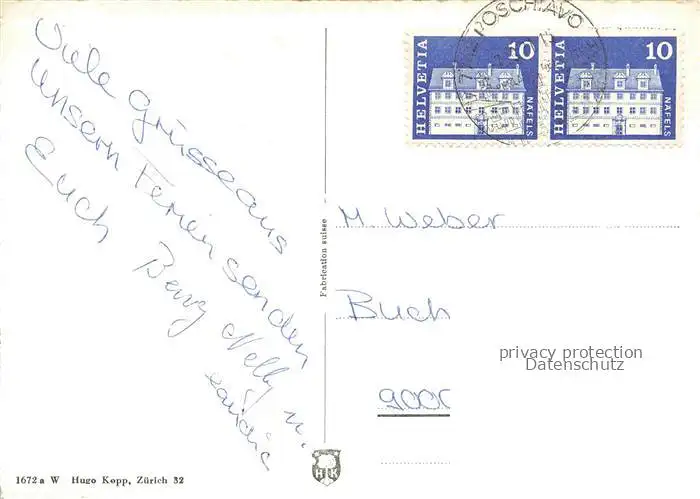 Viele Grüsse aus
unsern Ferien senden
Euch Benz Nelly u.
POSCHIAVO
HELVETIA 10 NÄFELS
HELVETIA 10 NÄFELS
Fabrication suisse
M. Weber
Buch
privacy protection
Datenschutz
1672 a W Hugo Kopp, Zürich 32
H K